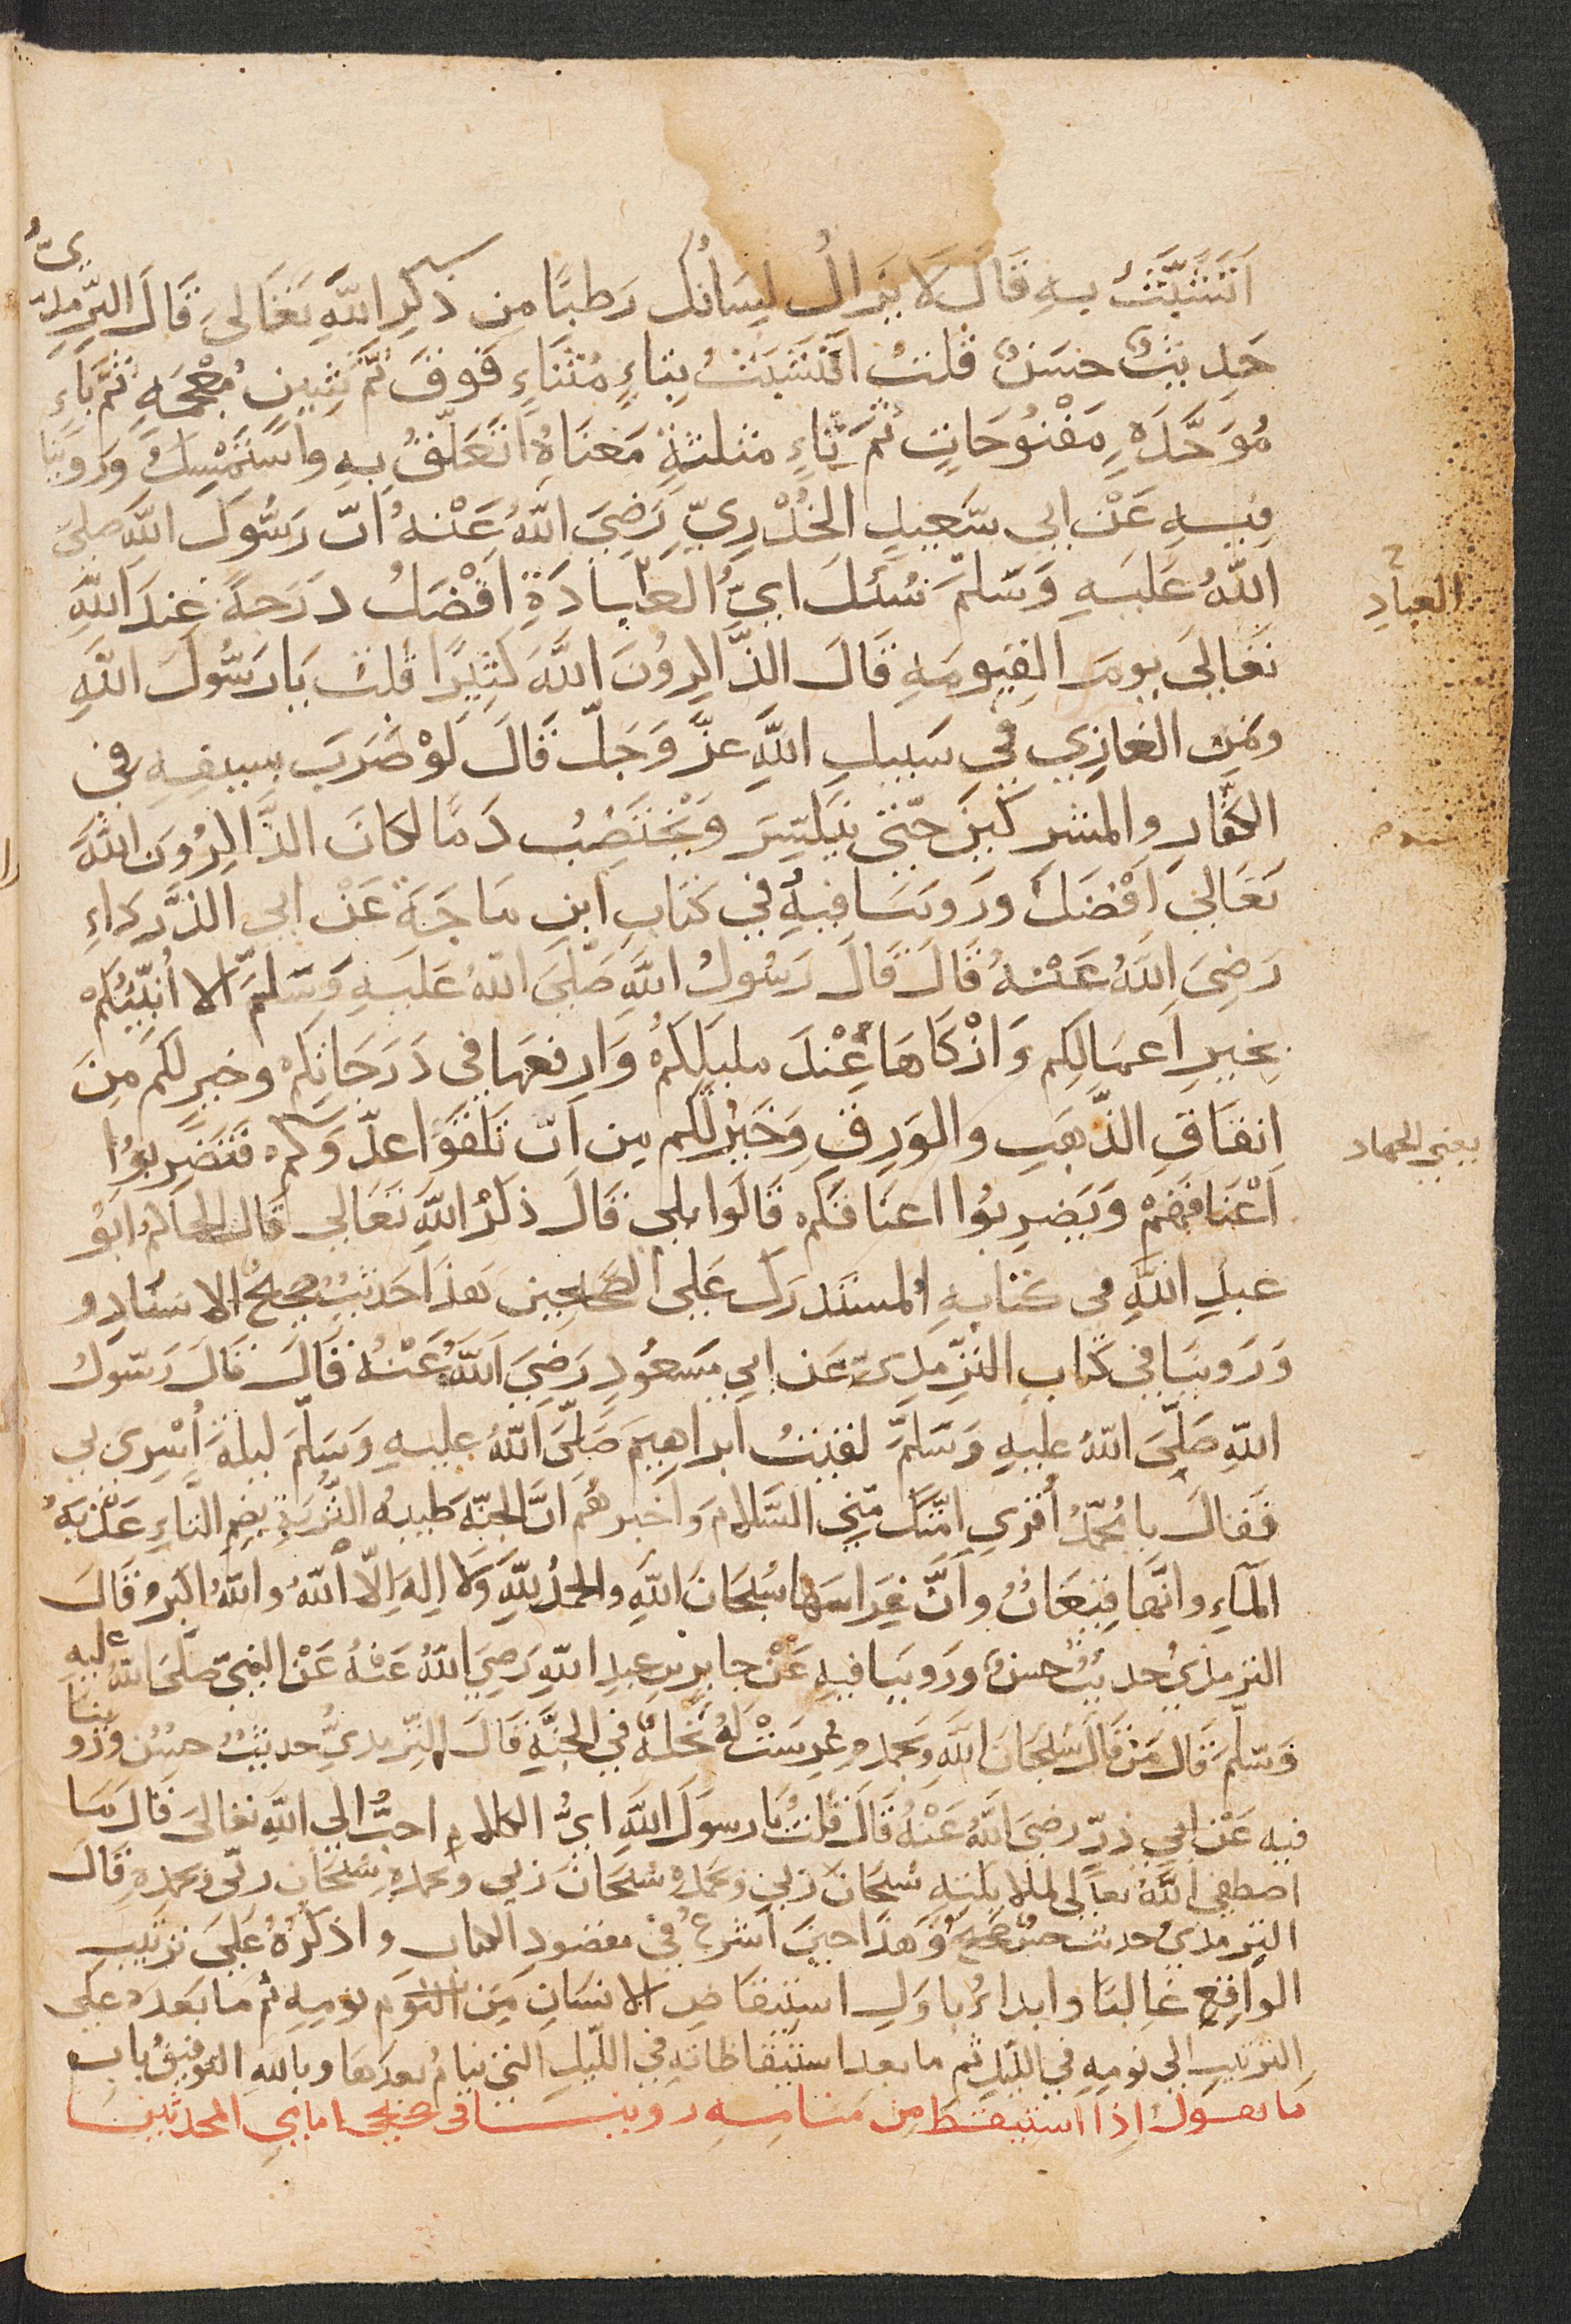 اَتَشَبَّثُ بِهِ قَالَ لَا يَزَالُ لِسَانُكَ رَطبًا مِن ذِكرِ اللَّهِ تَعَالَى قَالَ التِّرمِذِيُّ
حَدِيثٌ حَسَنٌ قُلتُ اَتَشَبَّثُ بِتَاءٍ مُثَنَاةٍ فَوقَ ثُمَّ شِينٍ مُعْجَمَةٍ ثُمَّ بَاءٍ
مُوَحَّدَةٍ مَفْتُوحَاتٍ ثُمَّ ثَاءٍ مثلثةٍ مَعنَاهُ اَتَعَلَّقُ بِهِ واَستَمْسِكُ وَرَوينَا
فِيهِ عَنْ ابي سَعِيدٍ الخُدْرِيِّ رَضِيَ اللَّهُ عَنْهُ اَنَّ رَسُولَ اللَّهِ صلىَ
اللَّهُ عَلَيهِ وَسَلَّمَ سُئِلَ ايُّ العبادَةِ اَفْضَلُ دَرَجةً عِندَ اللَّهِ
العبادِ
تَعَالَى يومَ القيومَةِ قَالَ الذَّاكِرُونَ اللَّهَ كَثِيرًا قُلتُ يَارَسُولَ اللَّهِ
ومَنِ الغازِي في سَبيلِ اللَّهِ عزَّ وَجَلَّ قَالَ لَوْ ضَرَبَ بِسيفِهِ في
الكُفَّارِ والمشركينَ حَتّى يَنكَسِرَ وَيَخْتَضِبُ دَمًا لكانَ الذَّاكِرُونَ اللَّهَ
تَعَالَى اَفْضَلَ وَرَوينَا فيهُ في كتابِ ابنِ مَاجَةَ عَنْ ابي الدَّردَاءِ
رَضِيَ اللَّهُ عَنْهُ قَالَ قَالَ رَسُولُ اللَّهِ صَلَّىَ اللَّهُ عَلَيهِ وَسَلَّمَ الا اُنَبِّئُكُمْ
بِخيرِ اَعمَالِكُم وَازْكَاهَا عِنْدَ مليكِكُمْ وَارفعهَا في دَرَجَاتِكُمْ وخير لكم مِنَ
اِنفَاقِ الذَّهَبِ والوَرِقِ وَخَيْرٌ لكم مِن اَنْ تَلقَوا عدُوَّكم فَتَضرِبوُا
يعني الجهاد
اَعْنَاقَهُمْ وَيَضرِبوُا اعنَاقَكُم قَالُوا بلى قَالَ ذكرُ اللَّهِ تَعَالى قَالَ الحاكمُ ابوُ
عبدِ اللَّهِ في كتابهِ المستَدرَك عَلى الصَّحيحين هَذَا حَديثٌ صحيحُ الاسنادِ و
وَرَوينَا في كتابِ التِّرمِذيّ عَن ابي مَسعُودٍ رَضِيَ اللَّهُ عَنْهُ قَالَ قَالَ رَسُولُ
اللَّهِ صَلَّىَ اللَّهُ عليهِ وَسَلَّمَ لقيتُ ابراهِيمَ صَلَّىَ اللَّهُ عليهِ وَسَلَّمَ ليلةَ اُسْرِيَ بي
فَقَالَ يا مُحَمَّدُ أقرِي امَّتَكَ مِنِّي السَّلامَ وَاَخبرهُم انَّ الجنّةَ طَيبةُ التُّربَةِ بضم التاءِ عَذْبَةُ
الماءِ وانَّها قِيعَانٌ وانَّ غِرَاسَها سُبْحَانَ اللَّهِ والحمدُ لِلَّهِ وَلا اِلهَ اِلّا اللَّهُ واللَّهُ اكبرُ قَالَ
الترمذيُ حديثٌ حسنٌ ورَوينا فيهِ عَنْ جابِرِ بنِ عبدِ اللَّهِ رَضِيَ اللَّهُ عَنْهُ عَنْ النبيّ صَلَّىَ اللَّهُ عليهِ
وَسَلَّمَ قَالَ مَن قَالَ سُبْحَانَ اللَّهِ وَبحمدِهِ غُرِسَتْ لَهُ نَخلةٌ في الجنَّةِ قَالَ التِّرمذيُّ حديثٌ حسنٌ وَرَوينَا
فيه عَنْ ابي ذرٍّ رضيَ اللَّهُ عَنْهُ قَالَ قُلتُ يَا رسولَ اللَّهِ ايُّ الكلامِ احبُّ الى اللَّهِ تعالىَ قَالَ مَا
اصطفى اللَّهُ تعالى لملايكتهِ سُبْحَانَ ربي وَبحمدهِ سُبْحَانَ ربي وبحمدهِ سُبْحَانَ ربّي وبحمدهِ قَالَ
الترمذيُ حديث حسنٌ صحيحٌ وَهَذَا حينَ اَشرعُ في مقصُودِ الكتابِ واذكرُهُ عَلىَ ترتيبِ
الواقِعِ غالبًا وابداءُ باوَلِ استيقاضِ الانسَانِ مِنَ النَّوم نومهِ ثم مَا بَعدَهُ على
الترتيبِ الى نومِهِ في الليلِ ثم ما بعد استيقاظاتهِ في اللّيلِ التي ينامُ بعدَهَا وبالله التوفيقُ بابُ
ما يقولُ اِذَا استيقظ مِن مَنامِهِ روينا في صحيحي امامي المحدثينَ